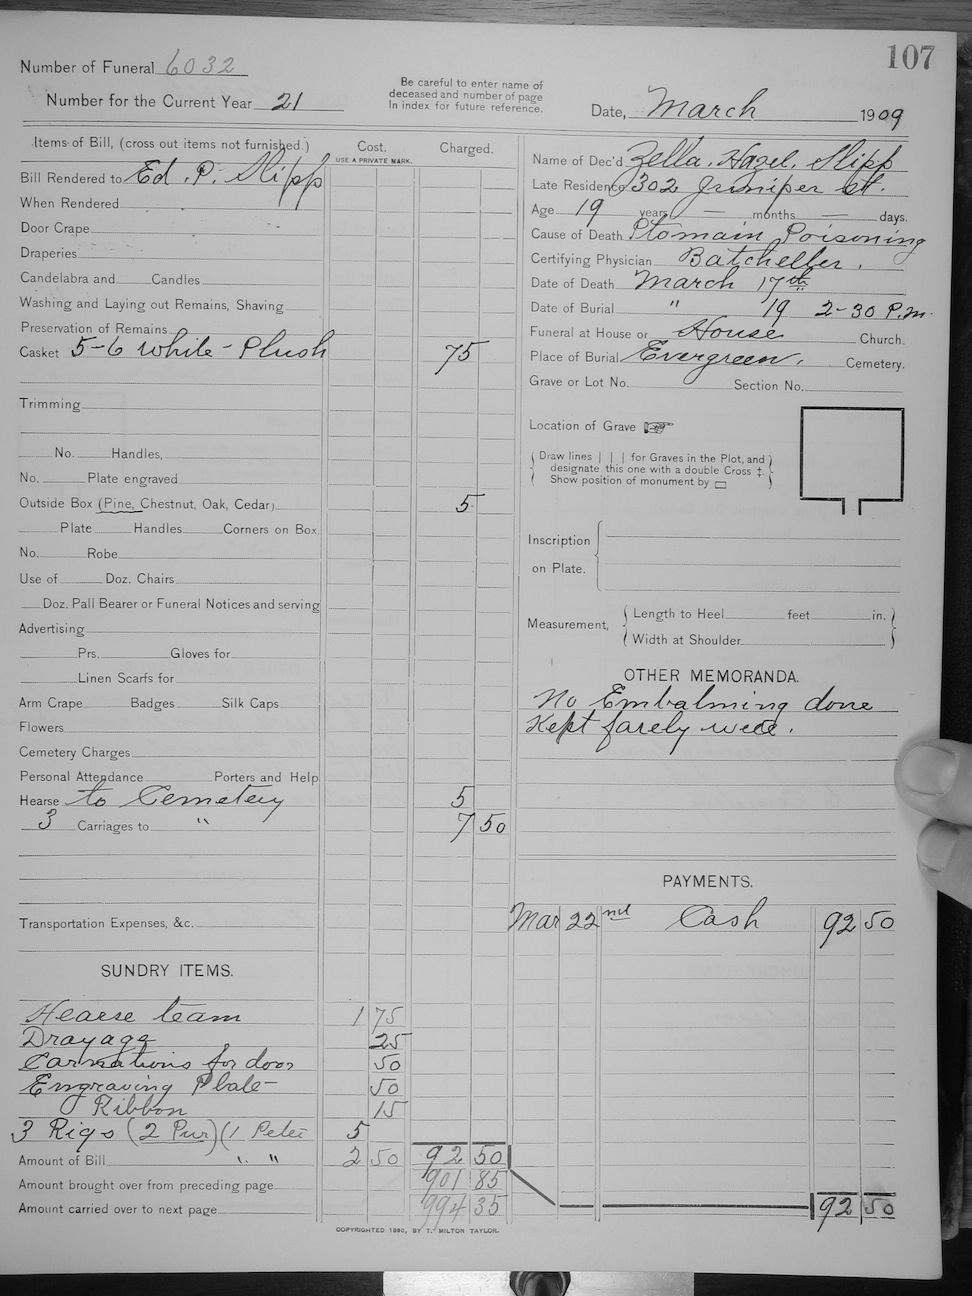 107
Number of Funeral 6032
Number for the Current Year 21
Be careful to enter name of
deceased and number of page
In index for future reference.
Date, March 1909
Items of Bill, (cross out items not furnished.)
Cost.
USE A PRIVATE MARK.
Charged.
Bill Rendered to Ed. P. Slipp
When Rendered
Door Crape
Draperies
Candelabra and Candles
Washing and Laying out Remains, Shaving
Preservation of Remains
Casket 5-6 White-Plush 75
Trimming
No. Handles,
No. Plate engraved
Outside Box (Pine, Chestnut, Oak, Cedar) 5
Plate Handles Corners on Box.
No. Robe
Use of Doz. Chairs
Doz. Pall Bearer or Funeral Notices and serving
Advertising
Prs. Gloves for
Linen Scarfs for
Arm Crape Badges Silk Caps
Flowers
Cemetery Charges
Personal Attendance Porters and Help
Hearse to Cemetery 5
3 Carriages to " 7 50
Transportation Expenses, &c.
SUNDRY ITEMS.
Hearse team 1 75
Drayage 25
Carnations for door 50
Engraving Plate- 50
Ribbon 15
3 Rigs (2 Pur) (1 5
Amount of Bill " " 2 50 92 50
Amount brought over from preceding page 901 85
Amount carried over to next page 994 35
Name of Dec'd Zella. Hazel. Slipp
Late Residence 302 Juniper St.
Age 19 years — months — days.
Cause of Death Ptomain Poisoning
Certifying Physician Batcheller.
Date of Death March 17th
Date of Burial " 19 2-30 P.M.
Funeral at House or House Church.
Place of Burial Evergreen. Cemetery.
Grave or Lot No. Section No.
Location of Grave
Draw lines | | | for Graves in the Plot, and
designate this one with a double Cross ‡.
Show position of monument by ▭
Inscription
on Plate.
Measurement, Length to Heel feet in.
Width at Shoulder
OTHER MEMORANDA.
No Embalming done
Kept farely well.
PAYMENTS.
Mar 22nd Cash 92 50
92 50
COPYRIGHTED 1890, BY T. MILTON TAYLOR.